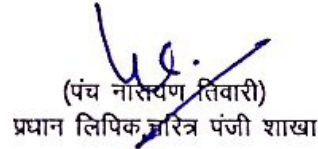 (पंच नारायण तिवारी)
प्रधान लिपिक चरित्र पंजी शाखा